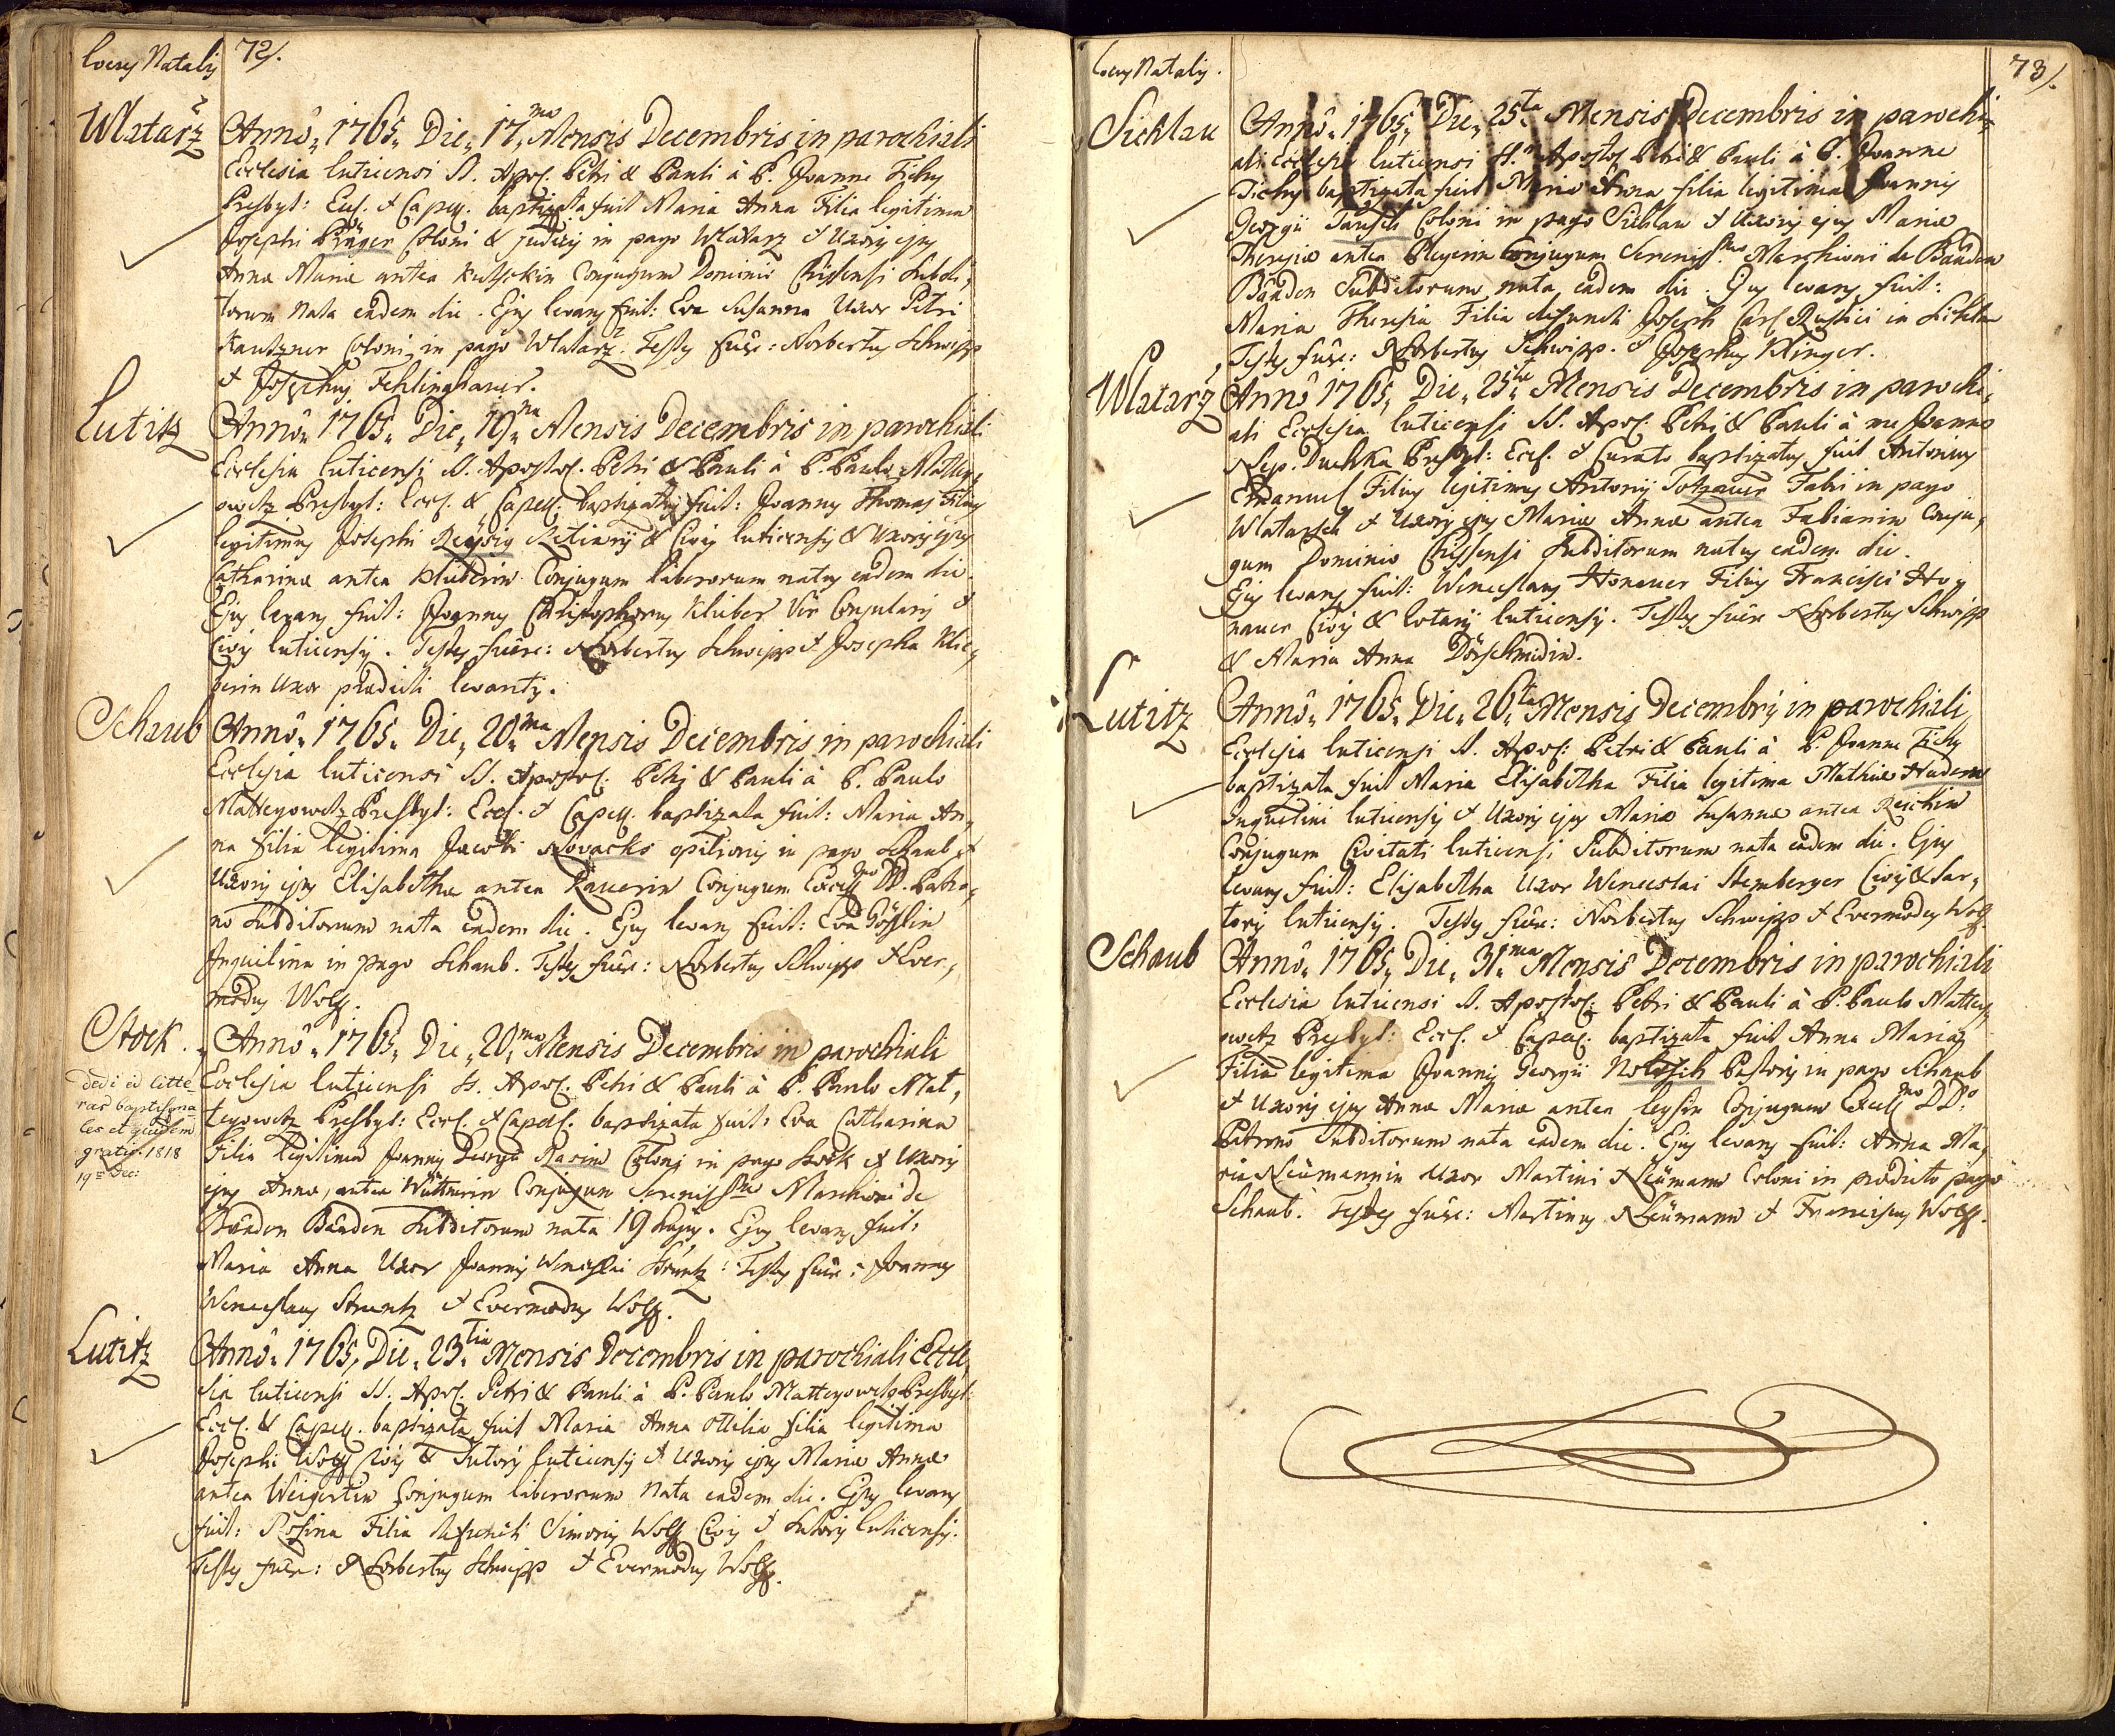 Locus Natalis 72/.
Wlatarž
Anno. 1765. Die. 17.mo Mensis Decembris in parochiali
Ecclesia luticensi SS. Apos. Petri & Pauli à P. Joanne Tichy
Presbyt: Eccl. & Capell. baptizata fuit Maria Anna Filia legitima
Josephi Präger Coloni & judicis in pago Wlatarz & Uxoris ejus
Anna Maria antea Kutschkin Conjugum Dominio Chissensi Subdi,
torum nata eadem die. Ejus levans fuit: Eva Susanna Uxor Petri
Kautzner Coloni in pago Wlatarz. Testes fuere: Norbertus Schwipp
& Josephus Fehlinghauer.
Lutitz
Anno. 1765. Die. 19.na Mensis Decembris in parochiali
Ecclesia luticensi SS. Apostol. Petri & Pauli à P. Paulo Mattey,
owetz Presbyt: Eccl. & Capell. baptizatus fuit: Joannes Thomas Filius
legitimus Josephi Civis luticensis & Uxoris ejus
Catharina antea Klüberin Conjugum liberorum natus eadem die.
Ejus levans fuit: Joannes Christophorus Klüber Vir Consularis &
Civis luticensis. Testes fuere: Norbertus Schwipp & Josepha Klie,
berin Uxor prædicti levantis.
Schaub
Anno. 1765. Die. 20.ma Mensis Decembris in parochiali
Ecclesia luticensi SS. Apostol. Petri & Pauli à P. Paulo
Matteyowetz Presbyt: Eccl. & Capell. baptizata fuit: Maria An,
na filia legitima Jacobi Novacks opilionis in pago Schaub &
Uxoris ejus Elisabetha antea Rauerin Conjugum Excell.mo DD. Patro,
no Subditorum nata eadem die. Ejus levans fuit: Eva Gösslin
Inquilina in pago Schaub. Testes fuere: Norbertus Schwipp & Ever,
modus Wolf.
Stock.
dedi id litte
ras baptisma
les et quidem
gratis. 1818
19na Dec:
Anno. 1765. Die. 20.ma Mensis Decembris in parochiali
Ecclesia luticensi SS. Apos. Petri & Pauli à P. Paulo Mat,
teyowetz Presbyt: Eccl. & Capell. baptizata fuit: Eva Catharina
Filia legitima Joannis Georgii Rasim Coloni in pago Stock & Uxoris
ejus Anna, antea Wüttnerin Conjugum Sereniss.mo Marchioni de
Baaden Baaden Subditorum nata 19 hujus. Ejus levans fuit:
Maria Anna Uxor Joannis Wenceslai Struntz: Testes fuere: Joannes
Wenceslaus Struntz & Evermodus Wolf.
Lutitz
Anno. 1765. Die. 23.tia Mensis Decembris in parochiali Eccle,
sia luticensi SS. Apos. Petri & Pauli à P. Paulo Matteyowetz Presbyt:
Eccl. & Capell. baptizata fuit Maria Anna Ottilia filia legitima
Josephi Wolf Civis & Sutoris luticensis & Uxoris ejus Maria Anna
antea Weigertin Conjugum liberorum nata eadem die. Ejus levans
fuit: Rosina Filia defuncti Simonis Wolf Civis & Sutoris luticensis.
Testes fuere: Norbertus Schwipp & Evermodus Wolf.
Locus Natalis. 73/.
Sichlau
Anno. 1765. Die. 25.ta Mensis Decembris in parochi,
ali Ecclesia luticensi SS. Apostol. Petri & Pauli à P. Joanne
Tichy baptizata fuit Maria Anna filia legitima Joannis
Georgii Tausch Coloni in pago Sichlau & Uxoris ejus Maria
Theresia antea Conjugum Sereniss.mo Marchioni de Baaden
Baaden Subditorum nata eadem die. Ejus levans fuit:
Maria Theresia Filia defuncti Joseph Carl Rustici in Sichlau
Testes fuere: Norbertus Schwipp. & Josephus Klinger.
Wlatarz
Anno 1765. Die. 25.ta Mensis Decembris in parochi,
ali Ecclesia luticensi SS. Apos. Petri & Pauli à me Joanne
Nep. Duchka Presbyt: Eccl. & Curato baptizatus fuit Antonius
Emanuel Filius legitimus Antonii Totzauer Fabri in pago
Wlatarsch & Uxoris ejus Maria Anna antea Fabianin Conju,
gum Dominio Chissensi Subditorum natus eadem die.
Ejus levans fuit: Wenceslaus Honauer Filius Francisci Ho,
nauer Civis & luticensis. Testes fuere Norbertus Schwipp
& Maria Anna Dörschmidin.
Lutitz
Anno. 1765. Die. 26.ta Mensis Decembris in parochiali,
Ecclesia luticensi SS. Apos: Petri & Pauli à P. Joanne Tichy
baptizata fuit Maria Elisabetha Filia legitima Mathiæ Hudem
Inquilini luticensis & Uxoris ejus Maria Susanna antea Reichin
Conjugum Civitati luticensi Subditorum nata eadem die. Ejus
levans fuit: Elisabetha Uxor Wenceslai Stemberger Civis & Sar,
toris luticensis. Testes fuere: Norbertus Schwipp & Evermodus Wolf.
Schaub
Anno. 1765. Die. 31.ma Mensis Decembris in parochiali
Ecclesia luticensi SS. Apostol: Petri & Pauli à P. Paulo Mattey,
owetz Presbyt: Eccl. & Capell. baptizata fuit Anna Maria
Filia legitima Joannis Georgii Pastoris in pago Schaub
& Uxoris ejus Anna Maria antea Conjugum Excell.mo DD.o
Patrono Subditorum nata eadem die. Ejus levans fuit: Anna Ma,
ria Neümannin Uxor Martini Neümann Coloni in prædicto pago
Schaub. Testes fuere: Martinus Neümann & Franciscus Wolf.